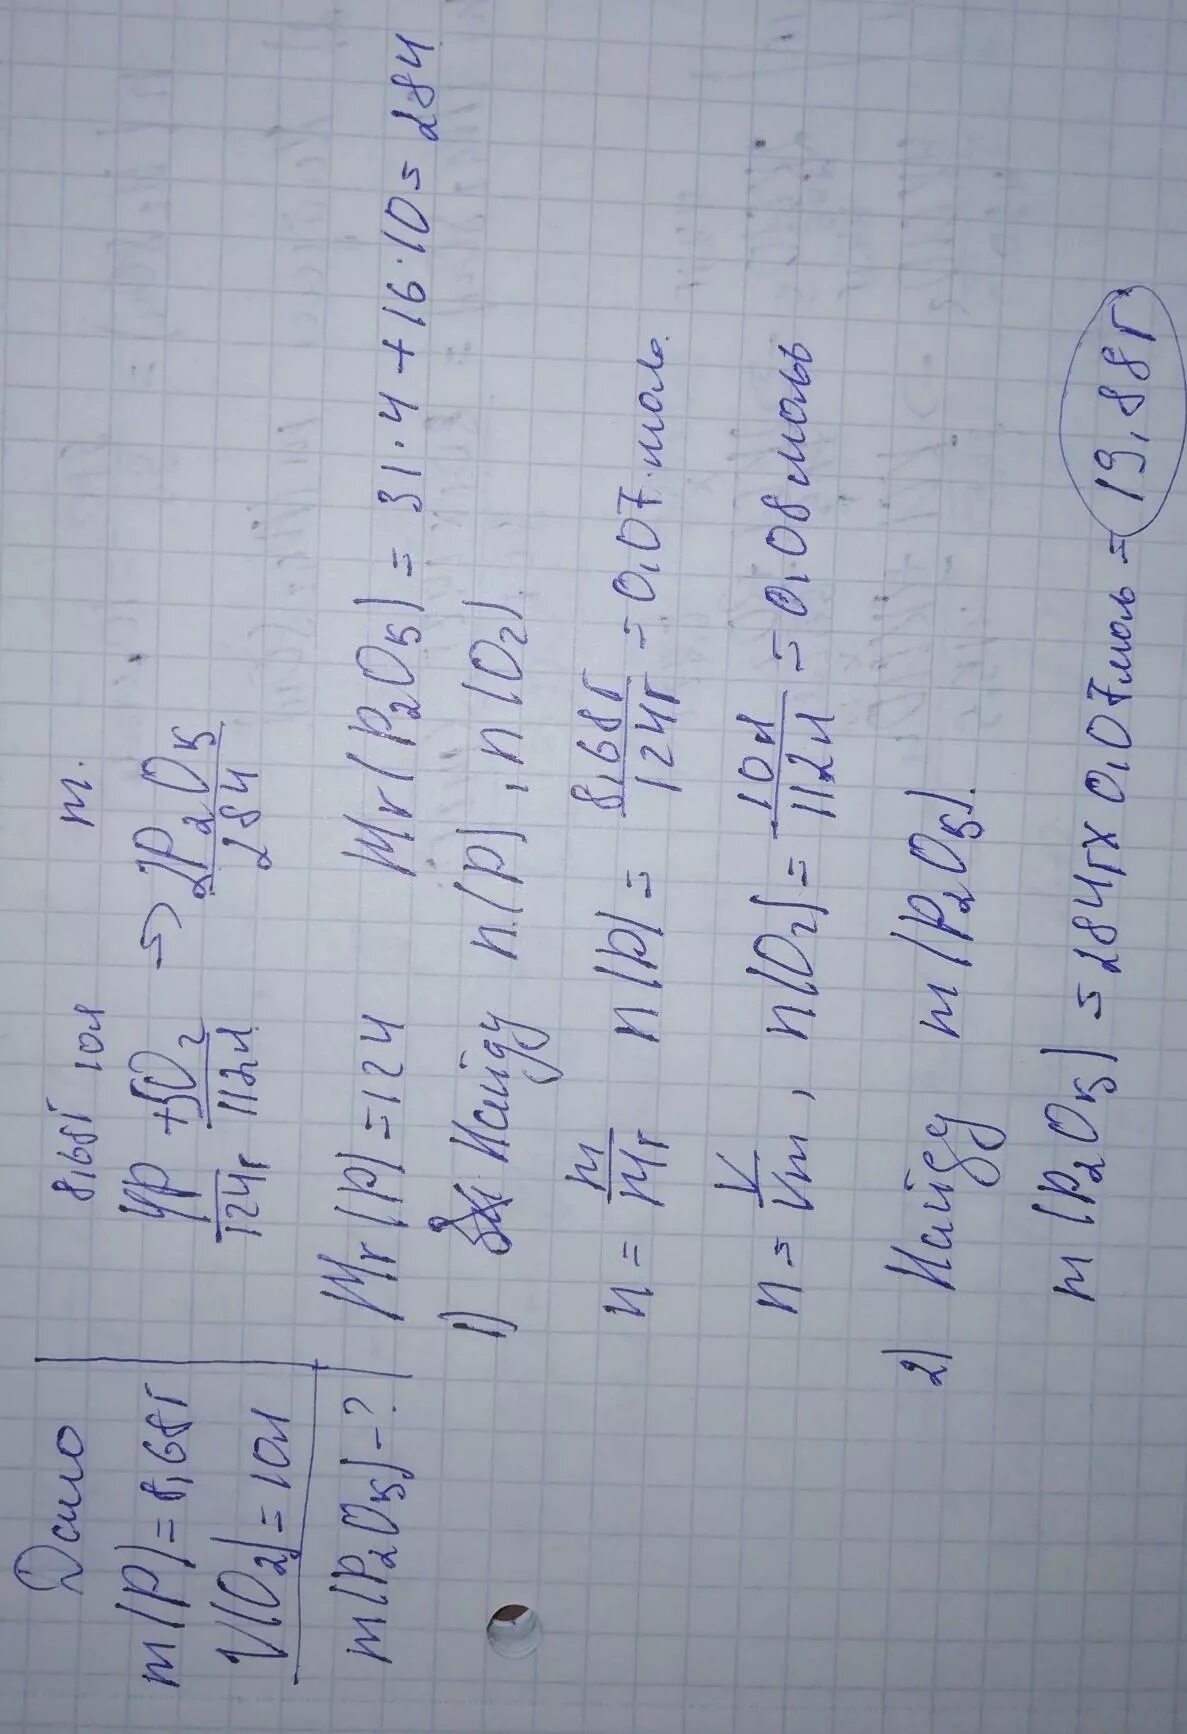 Дано
m(P)=8,68г
V(O₂)=10л
m(P₂O₅)-?
8,68г 10л m.
4P +5O₂ => 2P₂O₅
124г 112л 284
Mr(P)=124 Mr(P₂O₅)=31·4+16·10=284
1) Найду n(P), n(O₂)
n=m/Mr n(P)=8,68г/124г=0,07 моль
n=V/Vm, n(O₂)=10л/112л=0,08 моль
2) Найду m(P₂O₅).
m(P₂O₅)=284гx0,07моль=19,88г